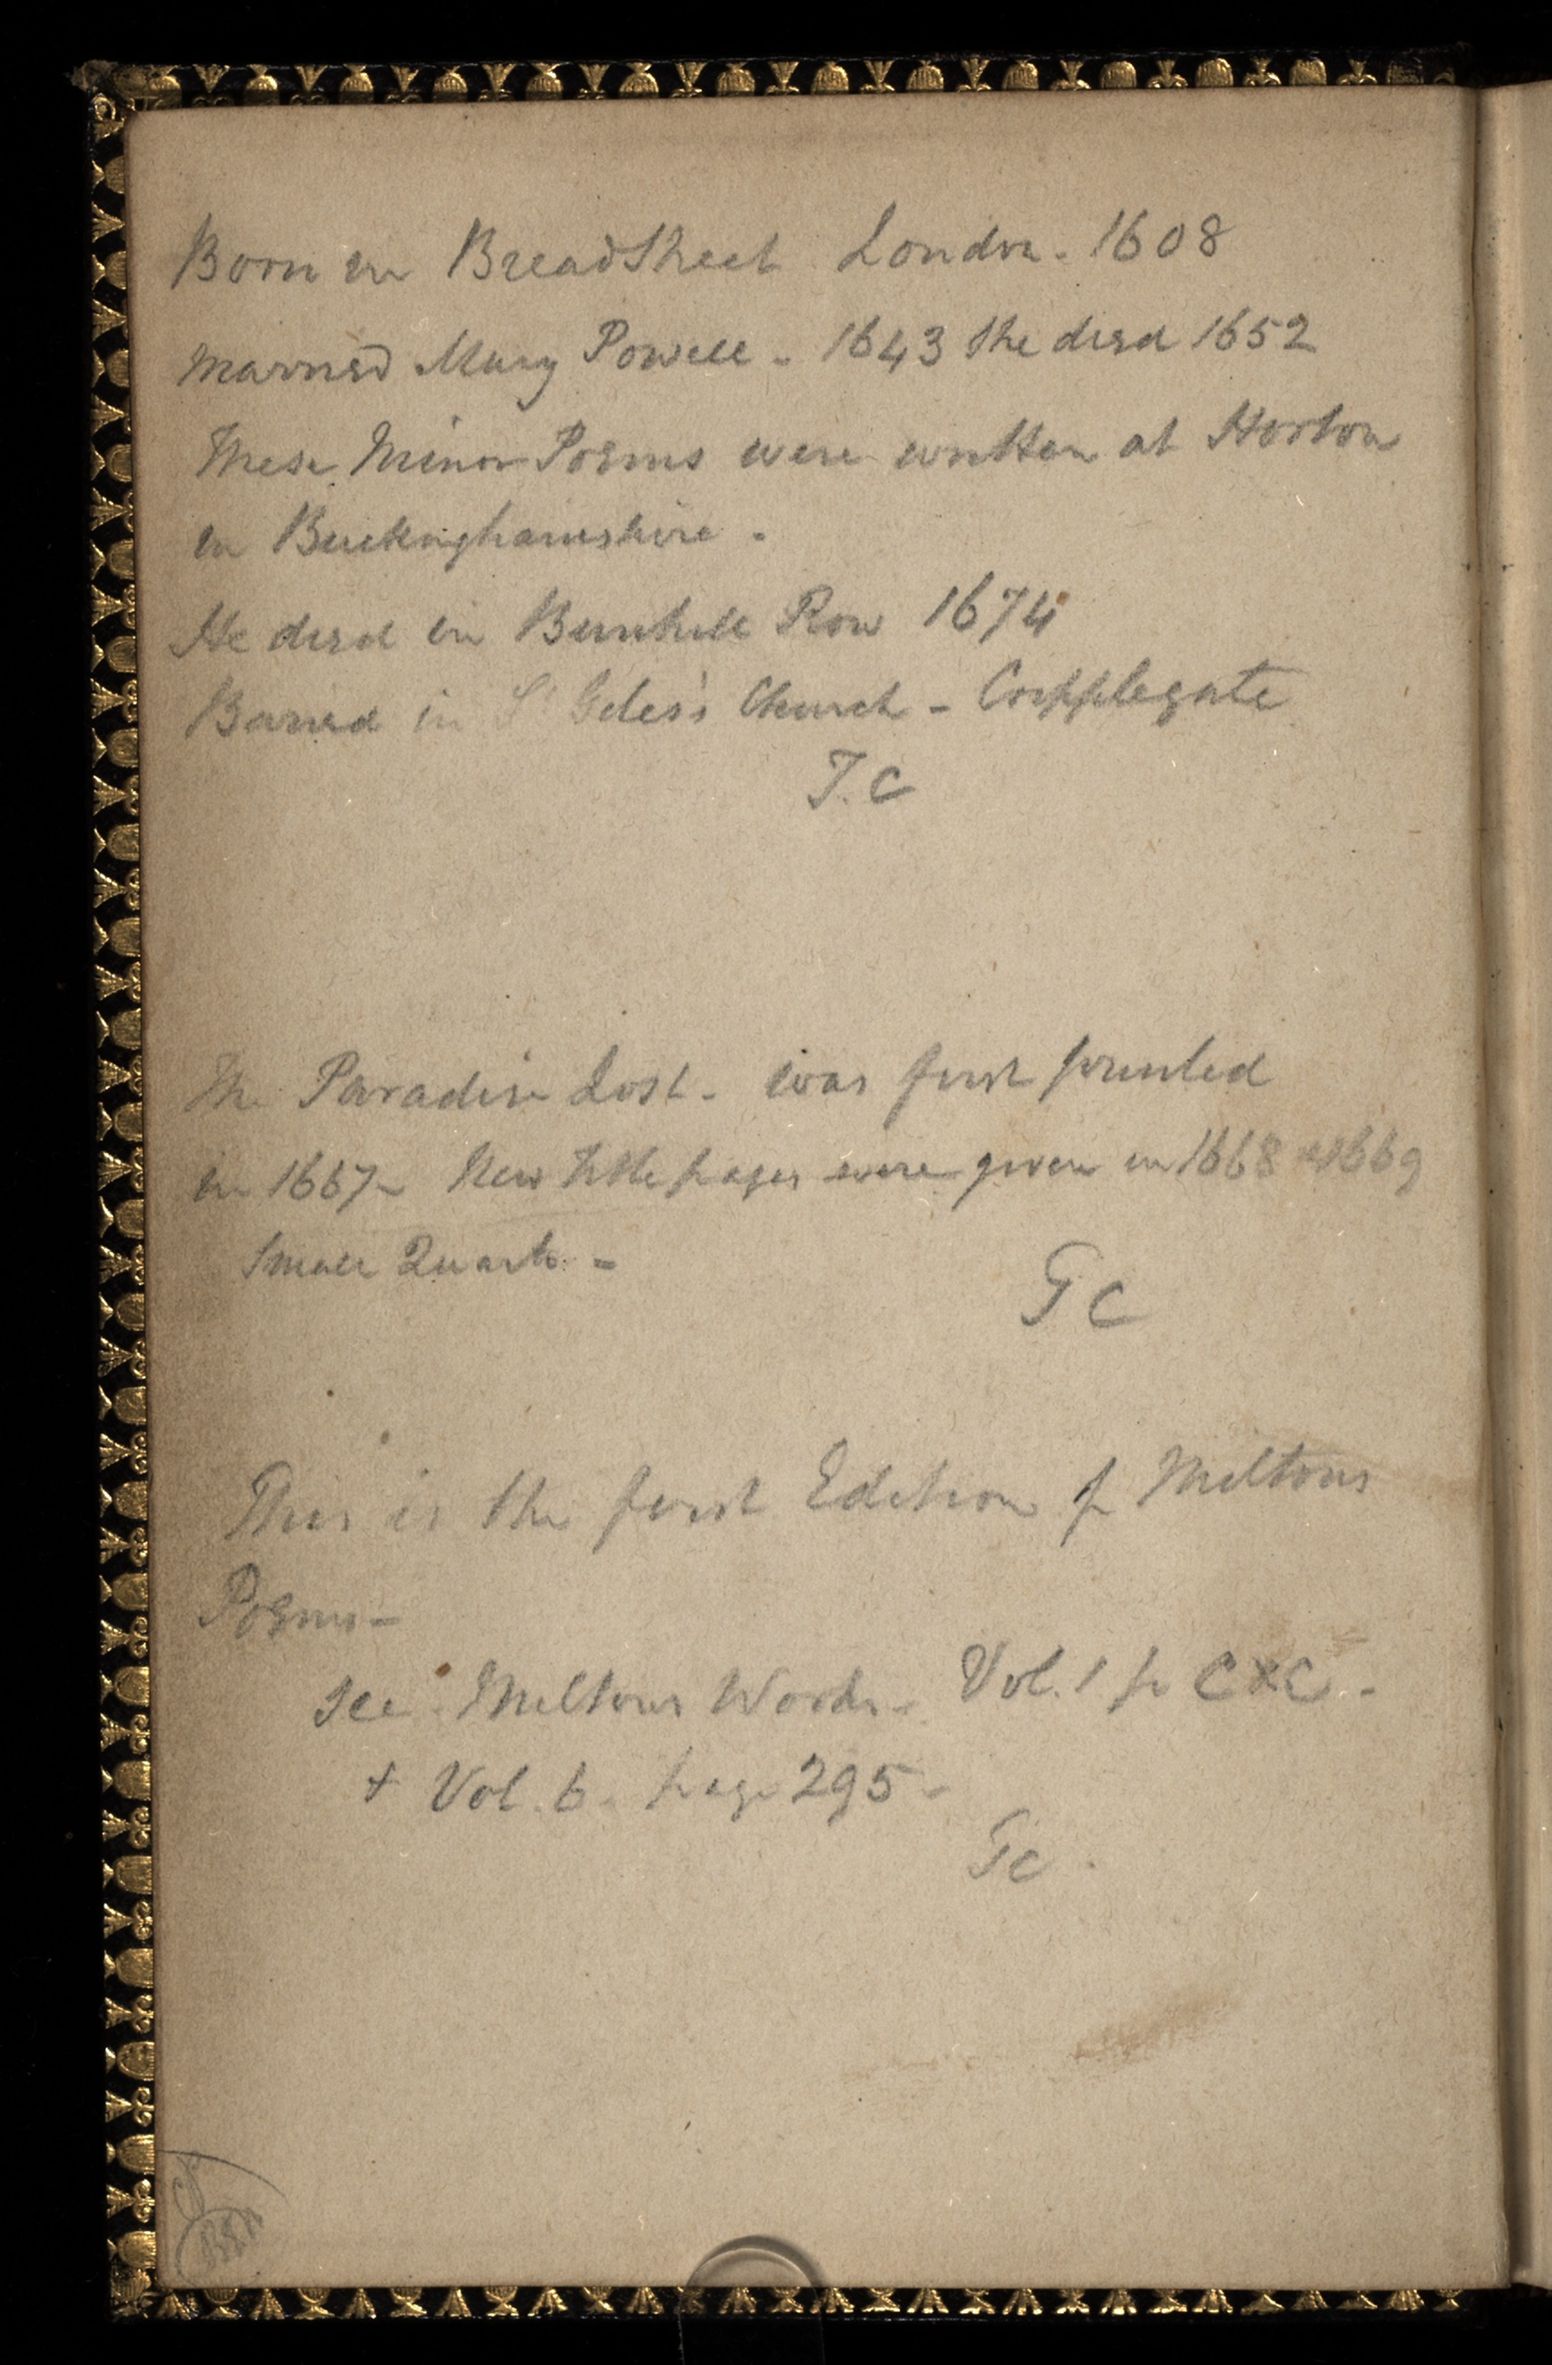 Born in Bread Street London - 1608
Married Mary Powell - 1643 She died 1652
These Minor Poems were written at Horton
in Buckinghamshire -
He died in Bunhill Row 1674
Buried in St Giles's Church - Cripplegate
T. C
The Paradise Lost - was first printed
in 1667 - New Title pages were given in 1668 & 1669
Small Quarto -
G C
This is the first Edition of Miltons
Poems -
See Miltons Works - Vol. 1 p CXC -
+ Vol. 6 - page 295 -
G C